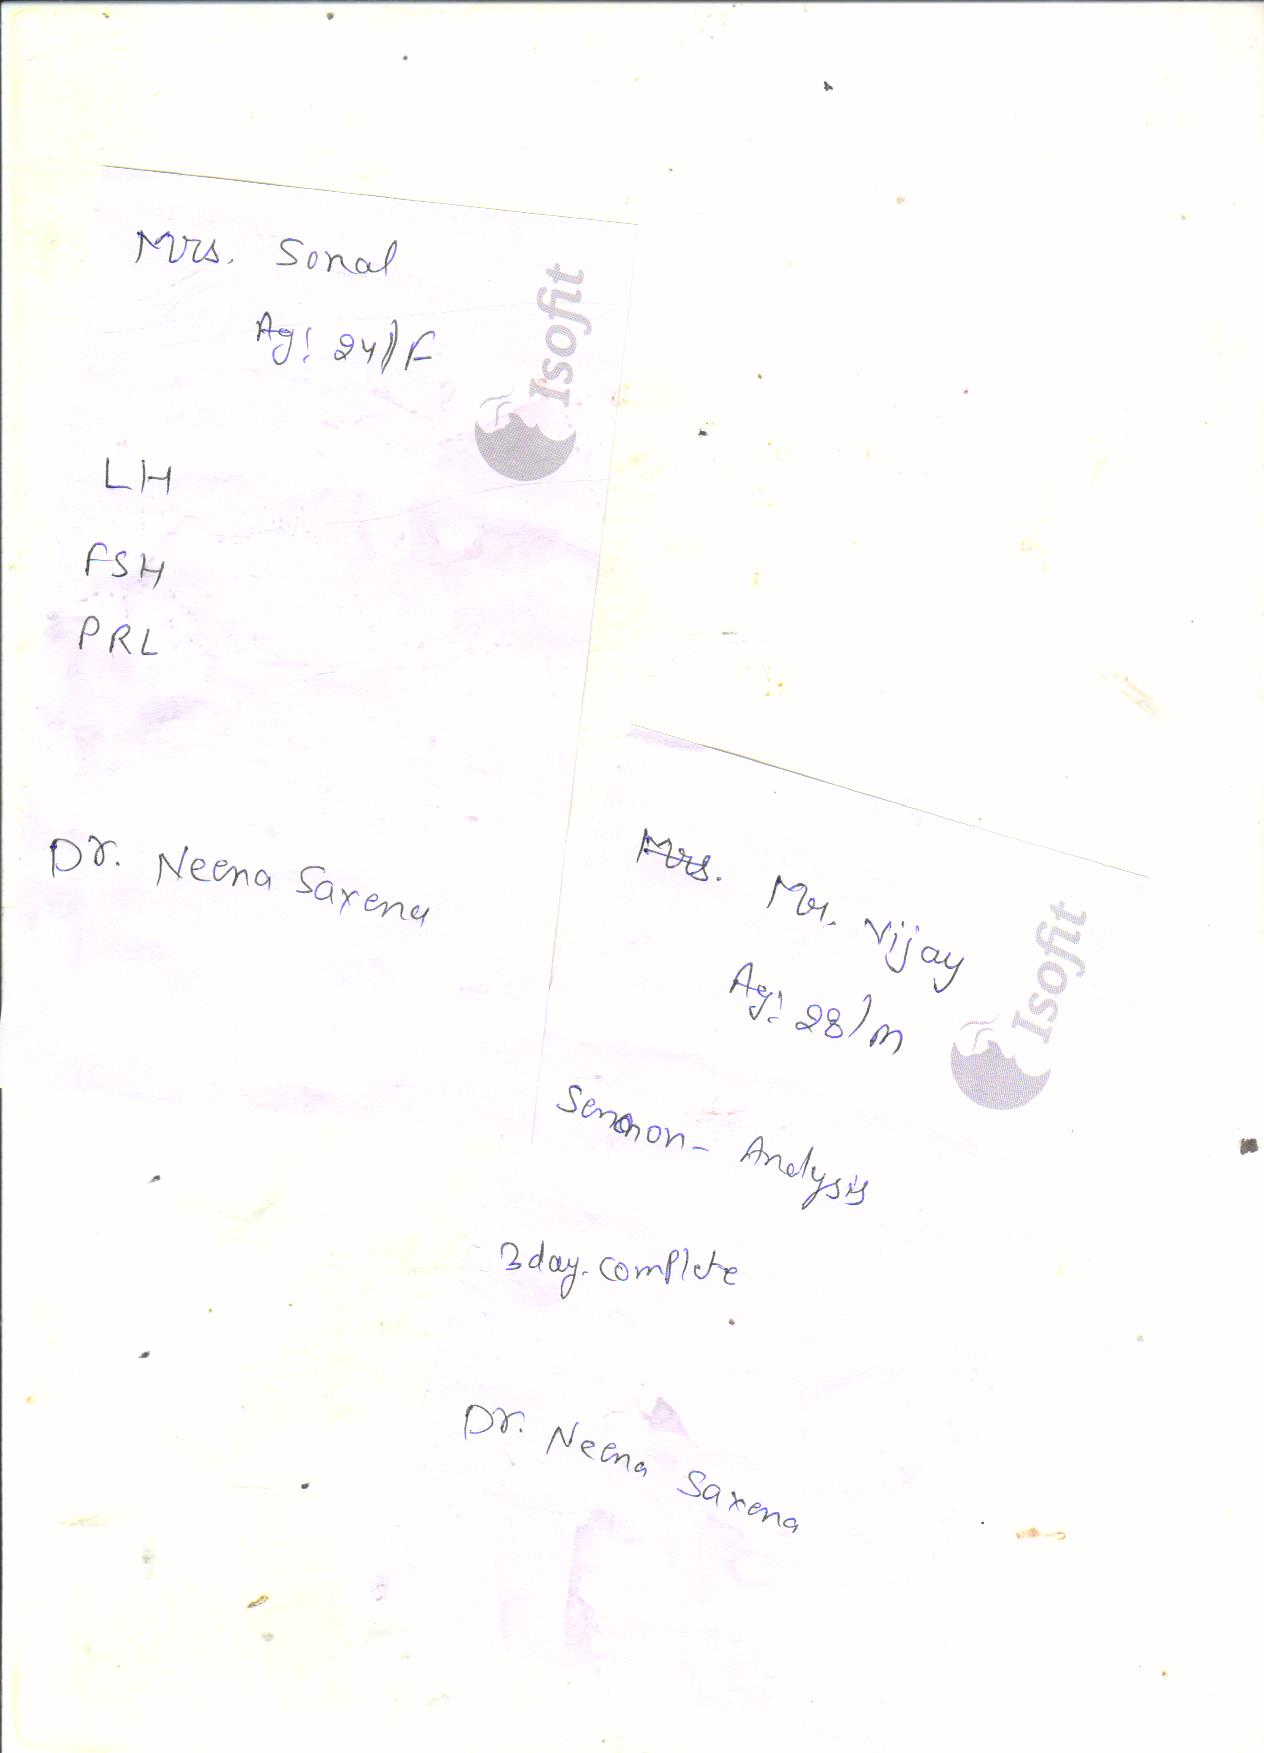 Mrs. Sonal
Ag: 24/F
Isofit
LH
FSH
PRL
Dr. Neena Saxena
Mrs. Mr. Vijay
Ag: 28/m
Isofit
Analysis
3day. complete
Dr. Neena Saxena